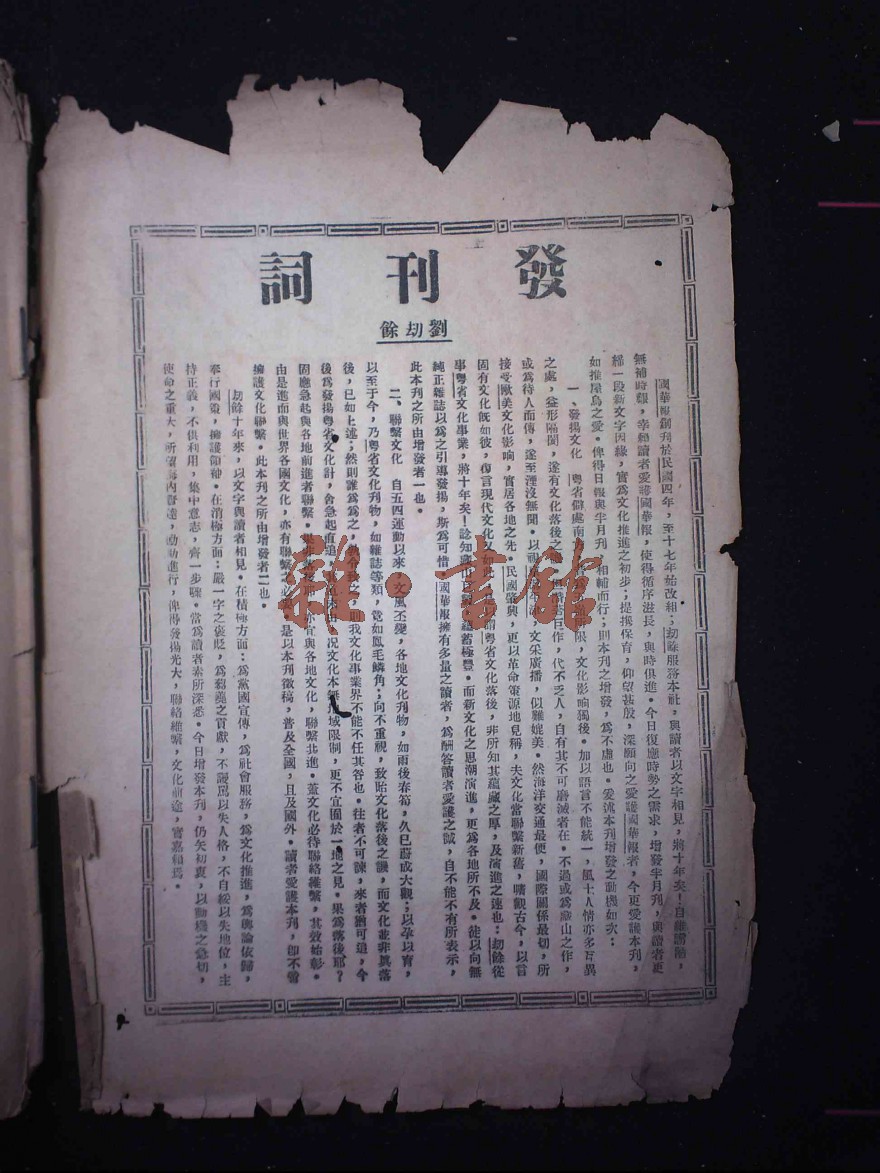 發刊詞
劉刧餘
國華報創刊於民國四年，至十七年始改組；刧餘服務本社，與讀者以文字相見，將十年矣！自維譾陋，
無補時艱，幸賴讀者愛護國華報，使得循序滋長，與時俱進。今日復應時勢之需求，增發半月刊，與讀者更
締一段新文字因緣，實為文化推進之初步；提携保育，仰望甚殷，深願向之愛護國華報者，今更愛護本刊，
如推屋烏之愛。俾得日報與半月刊，相輔而行；則本刊之增發，為不虛也。爰述本刊增發之動機如次：
一、發揚文化　粵省僻處南
限，文化影响獨後。加以語言不能統一，風土人情亦多互異
之處，益形隔閡，遂有文化落後之
巨作，代不乏人，自有其不可磨滅者在。不過或為藏山之作，
或為待人而傳，遂至湮沒無聞。以視
文采廣播，似難媲美。然海洋交通最便，國際關係最切，所
接受歐美文化影响，實居各地之先。民國肇興，更以革命策源地見稱，夫文化當聯繫新舊，嚌觀古今，以言
固有文化旣如彼，復言現代文化又如此
謂粵省文化落後，非所知其蘊藏之厚，及演進之速也：刧餘從
事粵省文化事業，將十年矣！諗知
蘊蓄極豐。而新文化之思潮演進，更為各地所不及。徒以向無
純正雜誌以為之引導發揚，斯為可惜。國華報擁有多量之讀者，為酬答讀者愛護之誠，自不能不有所表示，
此本刊之所由增發者一也。
二、聯繫文化　自五四運動以來，文風丕變，各地文化刊物，如雨後春筍，久已蔚成大觀；以孕以育，
以至于今，乃粵省文化刊物，如雜誌等類，竟如鳳毛鱗角；向不重視，致貽文化落後之譏，而文化並非眞落
後，已如上述；然則誰為為之，孰令致之，則我文化事業界不能不任其咎也。往者不可諫，來者猶可追，今
後為發揚粵省文化計，舍急起直追
况文化本無地域限制，更不宜囿於一地之見。果為落後耶？
固應急起與各地前進者聯繫。
亦宜與各地文化，聯繫北進。蓋文化必待聯絡維繫，其效始彰。
由是進而與世界各國文化，亦有聯繫之必要。是以本刊徵稿，普及全國，且及國外。讀者愛護本刊，卽不啻
擁護文化聯繫。此本刊之所由增發者二也。
刧餘十年來，以文字與讀者相見。在積極方面：為黨國宣傳，為社會服務，為文化推進，為輿論依歸，
奉行國策，擁護領袖。在消極方面：嚴一字之褒貶，為芻蕘之貢獻，不謾罵以失人格，不自綏以失地位，主
持正義，不俱利用，集中意志，齊一步驟。當為讀者素所深悉。今日增發本刊，仍矢初衷，以動機之急切，
使命之重大，所望海內賢達，勛勷進行，俾得發揚光大，聯絡維繫，文化前途，實嘉賴焉。
雜·書館